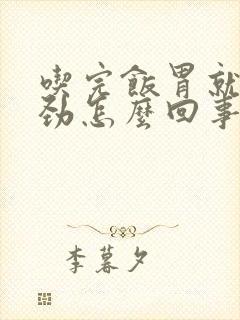 喫完飯胃就
勁怎麼回事
李暮夕